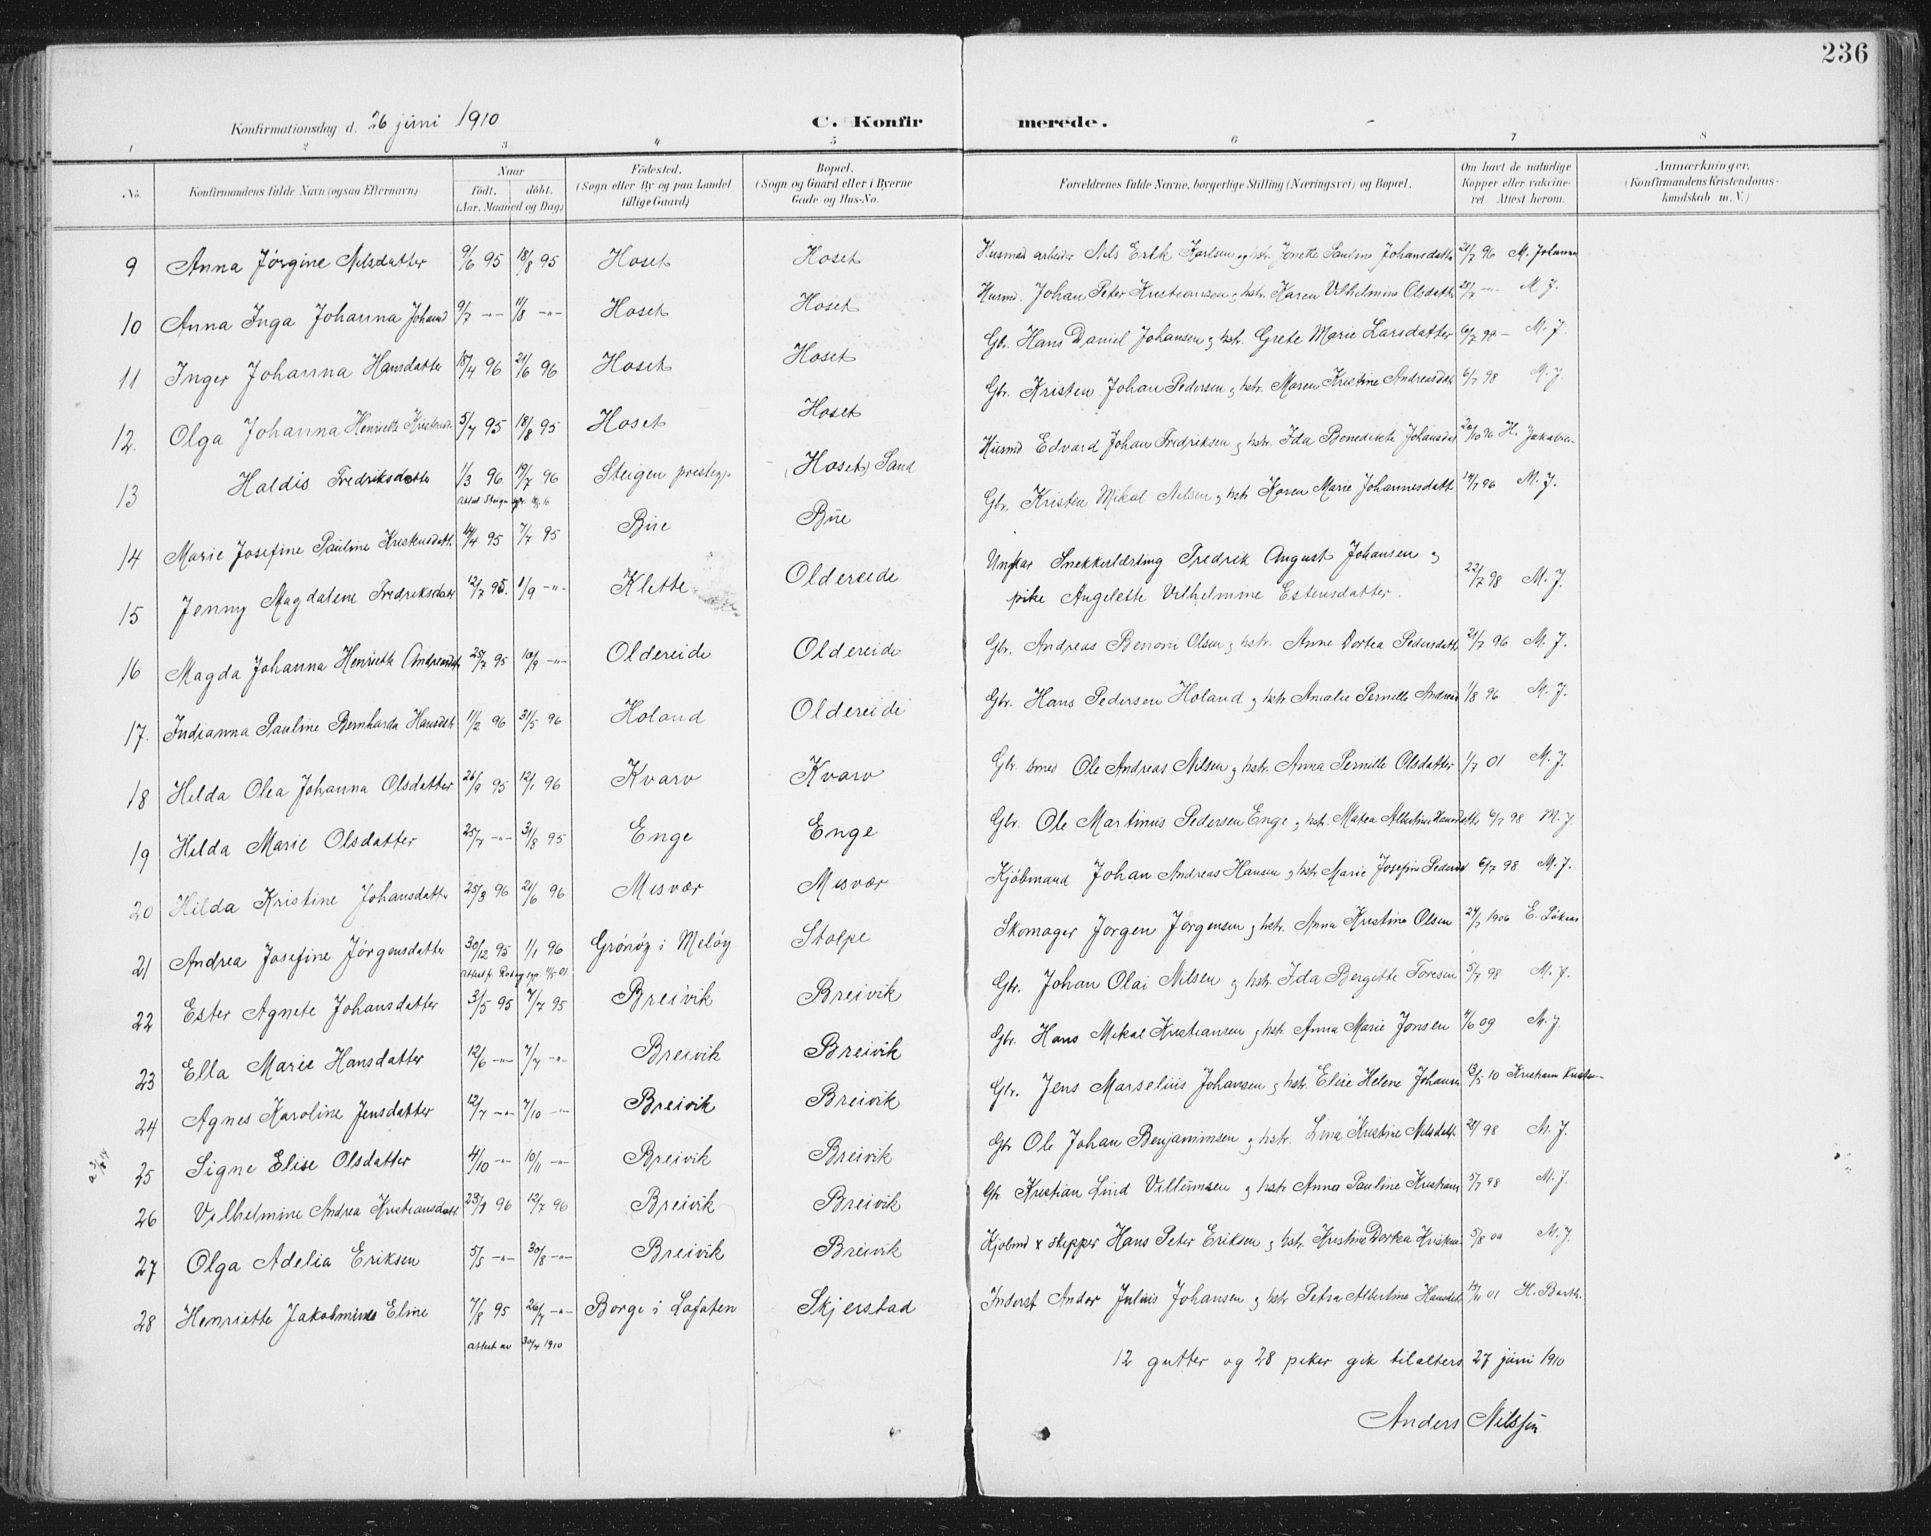 236
Konfirmationsdag d. 26 juni 1910
C. Konfirmerede.
1 2 3 4 5 6 7 8
No. Konfirmandens fulde Navn (ogsaa Efternavn) Naar født. døbt. (Aar, Maaned og Dag) Födested. (Sogn eller By og paa Landet tillige Gaard) Bopæl. (Sogn og Gaard eller i Byerne Gade og Hus-No.) Forældrenes fulde Navne, borgerlige Stilling (Næringsvei) og Bopæl. Om havt de naturlige Kopper eller vakcineret. Attest herom. Anmærkninger. (Konfirmandens Kristendomskundskab m. V.)
9 Anna Jørgine Nilsdatter 9/6 95 18/8 95 Hoset Hoset Husmd arbeider Nils Erik Karlsen og hstr. Jonette Pauline Johansdatter 21/7 96 M. Johansen
10 Anna Inga Johanna Johansd 9/7 -"- 11/8 -"- Hoset Hoset Husmd. Johan Peter Kristiansen og hstr. Karen Vilhelmine Olsdatter 21/7 -"- M. J.
11 Inger Johanna Hansdatter 18/4 96 21/6 96 Hoset Hoset Gbr. Hans Daniel Johansen og hstr. Grete Marie Larsdatter 6/7 98 M. J.
12. Olga Johanna Henriette Kristensd. 5/7 95 18/8 95 Hoset Hoset Gbr. Kristen Johan Pedersen og hstr. Maren Kristine Andreasdat 6/7 98 M. J.
13 Haldis Fredriksdatter 1/3 96 19/7 96 Steigen prestegj. (Hoset) Sand Husmd Edvard Johan Fredriksen og hstr. Ida Benedikte Johansdat 20/10 96 H. Jakobsen
14 Marie Josefine Pauline Kristensdatt. 14/4 95 7/7 95 Bue Bue Gbr. Kristen Mikal Nilsen og hstr Karen Marie Johannesdatt 14/7 96 M. J.
15 Jenny Magdalene Fredriksdatter 12/7 95. 1/9 -"- Klette Oldereide Ungkar Snekkerlærling Fredrik August Johansen og
pike Angelette Vilhelmine Estensdatter. 22/7 98 M. J.
16 Magda Johanna Henriette Andreasdt 25/7 95 10/9 -"- Oldereide Oldereide Gbr. Andreas Benoni Olsen og hstr. Anne Dortea Pedersdatt 21/7 96 M. J.
17. Indianna Pauline Bernharda Hansdt. 11/2 96 31/5 96 Holand Oldereide Gbr. Hans Pedersen Holand og hstr Amalie Pernille Andreasd 1/8 96 M. J.
18 Hilda Olea Johanna Olsdatter 26/9 95 12/1 96 Kvarv Kvarv Gbr. smed Ole Andreas Nilsen og hstr. Anna Pernille Olsdatter 1/7 01 M. J.
19 Hilda Marie Olsdatter 25/7 -"- 31/8 95 Enge Enge Gbr. Ole Martinus Pedersen Enge og hstr. Matea Albertine Hansdatt 6/7 98 M. J
20 Hilda Kristine Johansdatter 25/3 96 21/6 96 Misvær Misvær Kjøbmand Johan Andreas Hansen og hstr Marie Josefine Pedersd 6/7 98 M. J.
21 Andrea Josefine Jørgensdatter 30/12 95 1/1 96 Grønøy i Meløy Stolpe Skomager Jørgen Jørgensen og hstr. Anna Kristine Olsen 24/7 1906 E. Løken
22 Ester Agnete Johansdatter 3/5 95 7/7 95 Breivik Breivik Gbr. Johan Olai Nilsen og hstr Ida Bergette Toresen 5/7 98 M. J.
23 Ella Marie Hansdatter 12/6 -"- 7/7 -"- Breivik Breivik Gbr. Hans Mikal Kristiansen og hstr Anna Marie Jonsen 4/6 09 M. J
24 Agnes Karoline Jensdatter 12/7 -"- 7/10 -"- Breivik Breivik Gbr. Jens Marselius Johansen og hstr. Elise Helene Johansd 13/5 10 Kristian
25 Signe Elise Olsdatter 4/10 -"- 10/11 -"- Breivik Breivik Gbr Ole Johan Benjaminsen og hstr. Lina Kristine Nilsdatt. 98 M. J.
26 Vilhelmine Andrea Kristiansdatt. 23/1 96 12/7 96 Breivik Breivik Gbr. Kristian Lind Villumsen og hstr Anna Pauline Kristians 5/7 98 M. J.
27 Olga Adelia Eriksen 5/5 -"- 30/8 -"- Breivik Breivik Kjøbmd & skipper Hans Peter Eriksen og hstr. Kristine Dortea 5/8 00 M. J.
28 Henriette Jakobmine Eline 7/8 95 26/7 -"- Borge i Lofoten Skjerstad Inderst Ander Julius Johansen og hstr Petra Albertine Hansdtt 01 H. Barth.
Attest av 30/4 1910
12 gutter og 28 piker gik til alters 27 juni 1910
Anders Nilssen